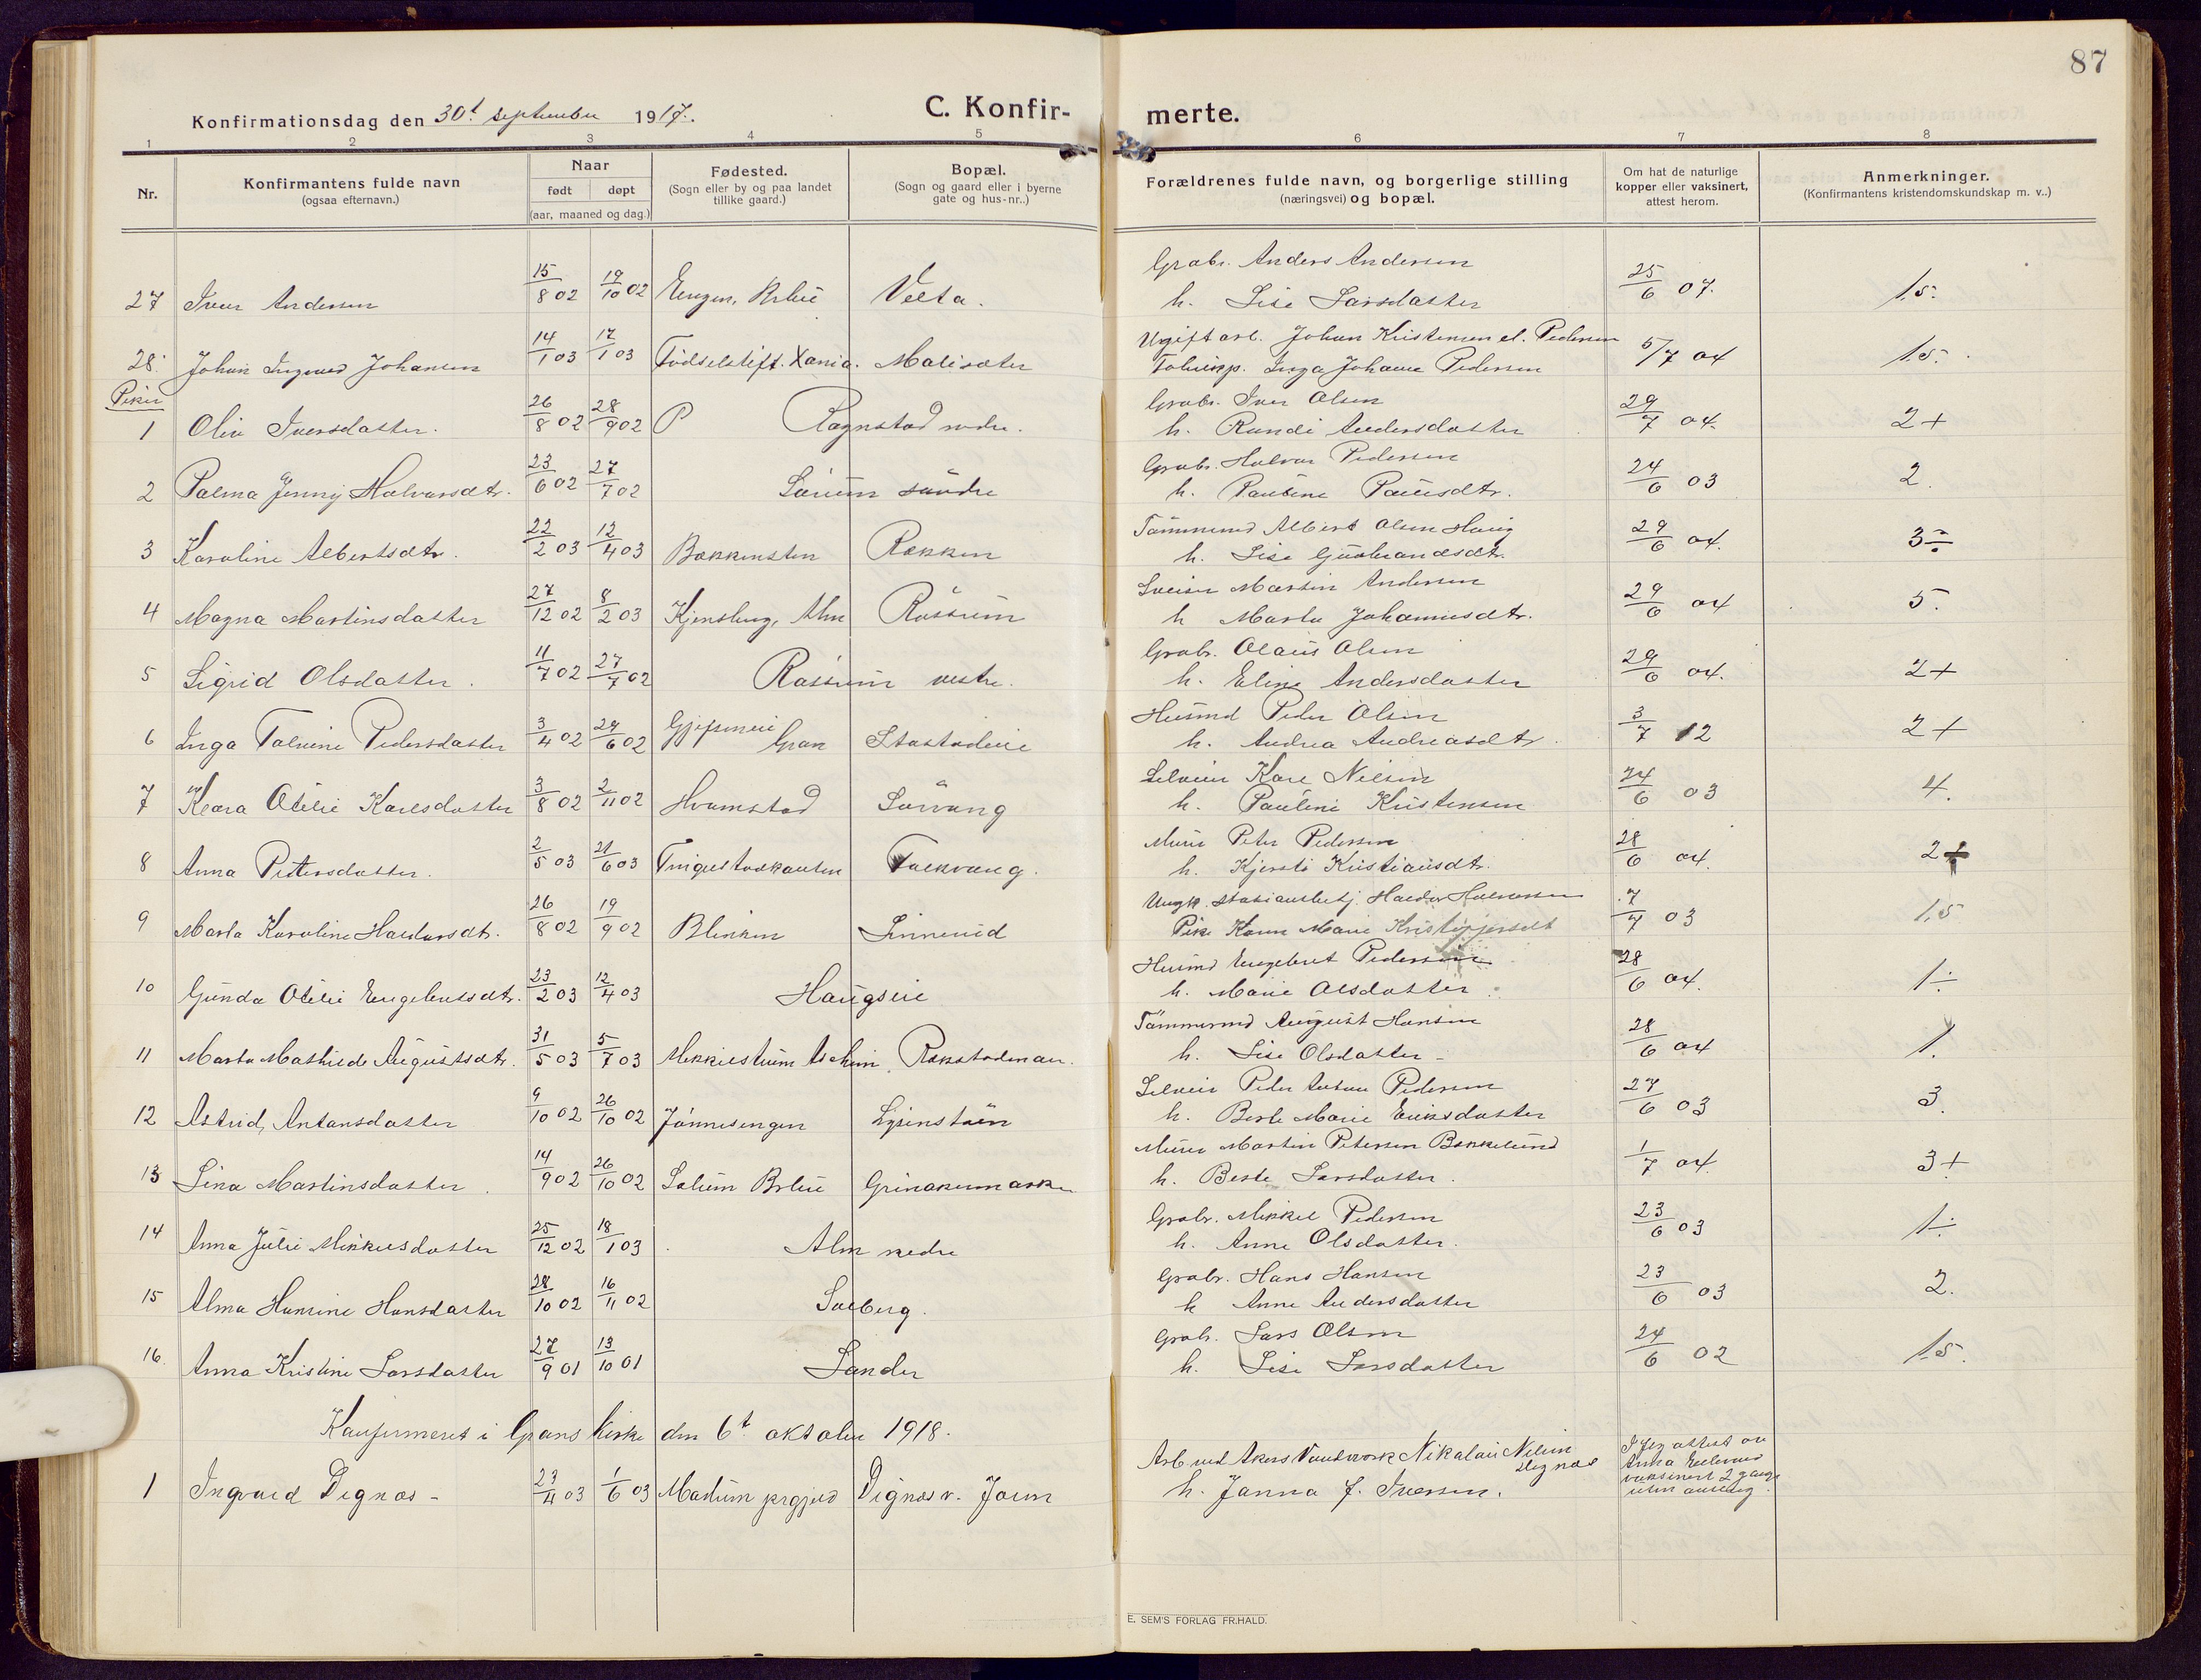 87
Konfirmationsdag den 30t september 1917.
C. Konfir-
merte.
1 2 3 4 5 6 7 8
Nr. Konfirmantens fulde navn (ogsaa efternavn.) Naar født døpt (aar, maaned og dag.) Fødested. (Sogn eller by og paa landet tillike gaard.) Bopæl. (Sogn og gaard eller i byerne gate og hus-nr..) Forældrenes fulde navn, og borgerlige stilling (næringsvei) og bopæl. Om hat de naturlige kopper eller vaksinert, attest herom. Anmerkninger. (Konfirmantens kristendomskundskap m. v..)
Grabr. Anders Andersen
27 Iver Andersen 15/8 02 19/10 02 Engen, Brbue Velta. h. Lise Larsdatter 25/6 07. 1.5.
Ugift arb. Johan Kristensen el. Pedersen
28. Johan Ingvald Johansen 14/1 03 17/1 03 Fødselstift. Xania. Malisæter Inga Johanne Pedersen 5/7 04 1.5.
Piker
Grabr. Iver Olsen
1 Oline Iversdatter. 26/8 02 28/9 02 P Rognstad nedre. h. Randi Andersdatter 29/7 04. 2+
Grabr. Halvor Pedersen
2 Palma Jenny Halvorsdtr. 23/6 02 27/7 02 Sørum søndre h. Pauline Paulsdtr. 24/6 03 2.
Tømmermd Albert Olsen Haug
3 Karoline Albertsdtr. 22/2 03 12/4 03 Bækkensten Rækken h. Lise Gudbrandsdtr. 29/6 04. 3÷
Sveiser Martin Andersen
4 Magna Martinsdatter 27/12 02 8/2 03 Kjensberg, Alm Røssum h Marta Johannesdtr. 29/6 04 5.
Grabr. Olaus Olsen
5 Sigrid Olsdatter. 11/7 02 27/7 02 Røssum vestre. h. Eline Andersdatter 29/6 04. 2+
Husmd Peder Olsen
6 Inga Talvine Pedersdatter 3/4 02 29/6 02 Gran Stastadeie h. Andrea Andreasdtr. 3/7 12 2+
Selveier Karl Nilsen
7 Klara Otilie Karlsdatter 3/8 02 2/11 02 Hvamstad Sørvang h. Pauline Kristensen 24/6 03 4.
Murer Peter Pedersen
8 Anna Petersdatter. 2/5 03 21/6 03 Tingelstadkanten Falkvang. h. Kjersti Kristiansdtr. 28/6 04. 2+
Ungk. stasionsbetj. Haldor Halvorsen
9 Marta Karoline Haldorsdtr. 26/8 02 19/9 02 Blinken Linnerud Pike Karen Marie Kristoffersdt 7/7 03 1,5
Husmd Engebret Pedersen
10 Gunda Otilie Engebretsdtr. 23/2 03 12/4 03 Haugseie h. Marie Olsdatter. 28/6 04. 1÷
Tømmermd August Hansen
11 Marta Mathilde Augustsdtr. 31/5 03 5/7 03 Mikkilstuen Askim, Rækstadmoen. h. Lise Olsdatter - 28/6 04 1.
Selveier Peder Anton Pedersen
12 Astrid, Antonsdatter 9/10 02 26/10 02 Jønnesengen Lysenstøen h. Berte Marie Eriksdatter 27/6 03 3.
Murer Martin Petersen Bækkelund
13 Lina Martinsdatter. 14/9 02 26/10 02 Solum Brbue Grinakermarken h. Berte Larsdatter. 1/7 04 3+
Grabr. Mikkel Pedersen
14 Anna Julie Mikkelsdatter 25/12 02 18/1 03 Alm nedre h. Anne Olsdatter. 23/6 03 1÷
Grabr. Hans Hansen
15 Alma Hansine Hansdatter 28/10 02 16/11 02 Solberg. h Anne Andersdatter 23/6 03 2.
Grabr. Lars Olsen
16 Anna Kristine Larsdatter 27/9 01 13/10 01 Sander h. Lise Larsdatter 24/6 02 1.5.
Konfirmeret i Grans kirke den 6t oktober 1918.
Arb. ved Akers Vandverk Nikolai Nilsen Dignæs
1 Ingvald Dignæs - 23/4 03 1/6 03 Modum prgjeld Dignæs v. Jaren h. Janna J. Iversen. Iflg attest av Anna vaksinert 2 gange uten anslag.
E. SEM'S FORLAG FR.HALD.